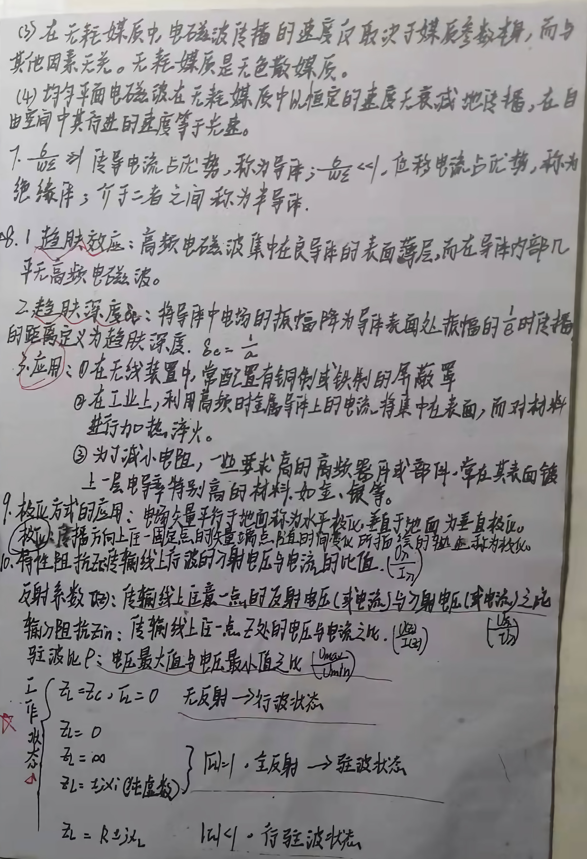 (3) 在无耗媒质中,电磁波传播的速度仅取决于媒质参数本身,而与
其他因素无关。无耗媒质是无色散媒质。
(4) 均匀平面电磁波在无耗媒质中以恒定的速度无衰减地传播,在自
由空间中其行进的速度等于光速。
7. σ/ωε ≫1 传导电流占优势,称为导体; σ/ωε <<1,位移电流占优势,称为
绝缘体;介于二者之间称为半导体.
8. 1.趋肤效应:高频电磁波集中在良导体的表面薄层,而在导体内部几
乎无高频电磁波。
2.趋肤深度δc:将导体中电场的振幅降为导体表面处振幅的1/e时传播
的距离定义为趋肤深度. δc=1/α
3.应用:①在无线装置中,常配置有铜制或铁制的屏蔽罩
②在工业上,利用高频时金属导体上的电流将集中在表面,而对材料
进行加热淬火。
③为了减小电阻,一些要求高的高频器件或部件,常在其表面镀
上一层电导率特别高的材料.如金、银等。
9. 极化方式的应用:电场矢量平行于地面称为水平极化.垂直于地面为垂直极化。
极化:传播方向上任一固定点的矢量端点随时间变化所描绘的轨迹称为极化。
10. 特性阻抗Zc:传输线上行波的入射电压与电流的比值.(Ui/Ii)
反射系数Γ(z):传输线上任意一点的反射电压(或电流)与入射电压(或电流)之比
输入阻抗Zin:传输线上任一点Z处的电压与电流之比.(U(z)/I(z)) (Ur/Ui)
驻波比ρ:电压最大值与电压最小值之比 (Umax/Umin)
工作状态
ZL=Zc, ΓL=0 无反射→行波状态
ZL=0
ZL=∞
ZL=±jXL(纯虚数) |ΓL|=1.全反射→驻波状态
ZL=R±jXL |ΓL|<1.行驻波状态